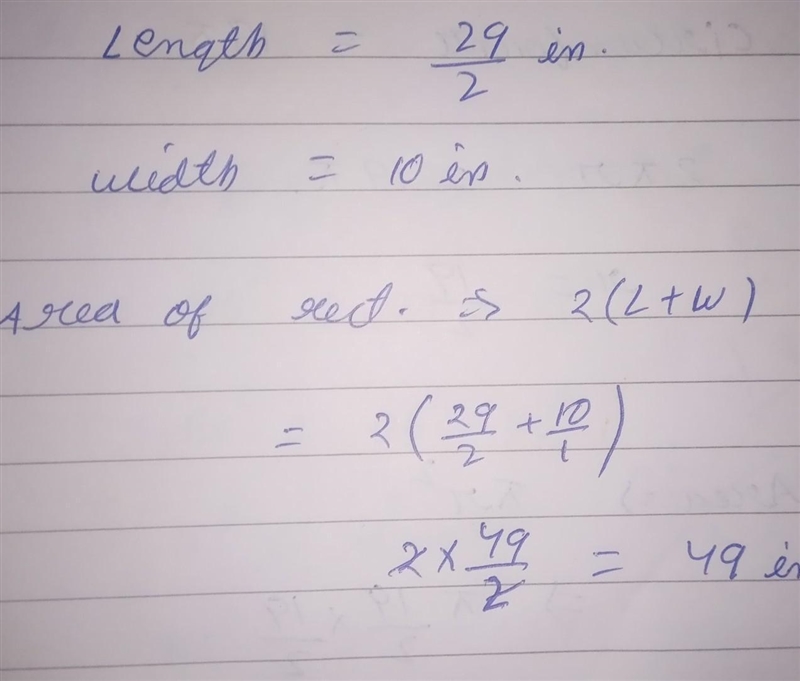 Length = 29/2 in.
width = 10 in.
Area of rect. ⇒ 2(L+W)
= 2(29/2 + 10/1)
2 × 49/2 = 49 in